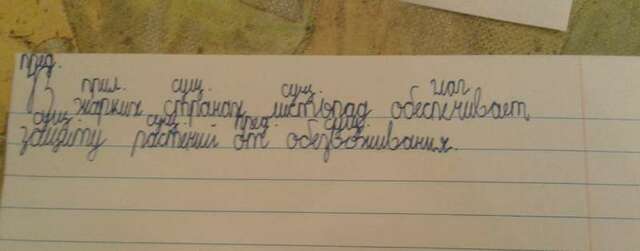 пред.
прил. сущ. сущ. глаг.
В жарких странах листопад обеспечивает
сущ. сущ. пред. сущ.
защиту растений от обезвоживания.